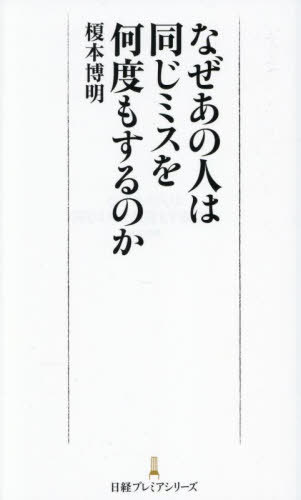 なぜあの人は
同じミスを
何度もするのか
榎本博明
日経プレミアシリーズ